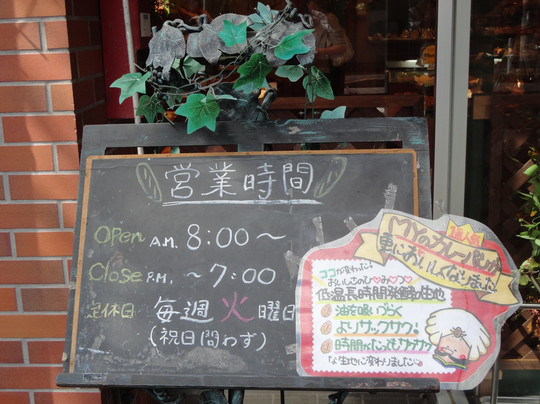 営業時間
Open A.M. 8:00〜
Close P.M. 〜7:00
定休日 毎週火曜日
(祝日問わず)
人気
MYのカレーパンが
更においしくなりました!
ココが変わった!
おいしさのひ♡み♡つ
低温長時間発酵生地
油を吸いづらく
よりサックサク!
時間がたってもサクサク
な生地に変わりました